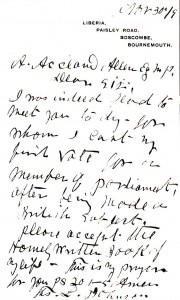 Nov 30th/9
LIBERIA,
PAISLEY ROAD,
BOSCOMBE,
BOURNEMOUTH.
A. Accland Allen Esq M.P.
Dear Sir.
I was indeed glad to
meet you to day - for
whom I cast my
first vote for a
member of parliament
after being made a
British Subject.
please accept the
Homely Written Book of
my life - This is my prayer
for you Ps 20. 1-5. Amen